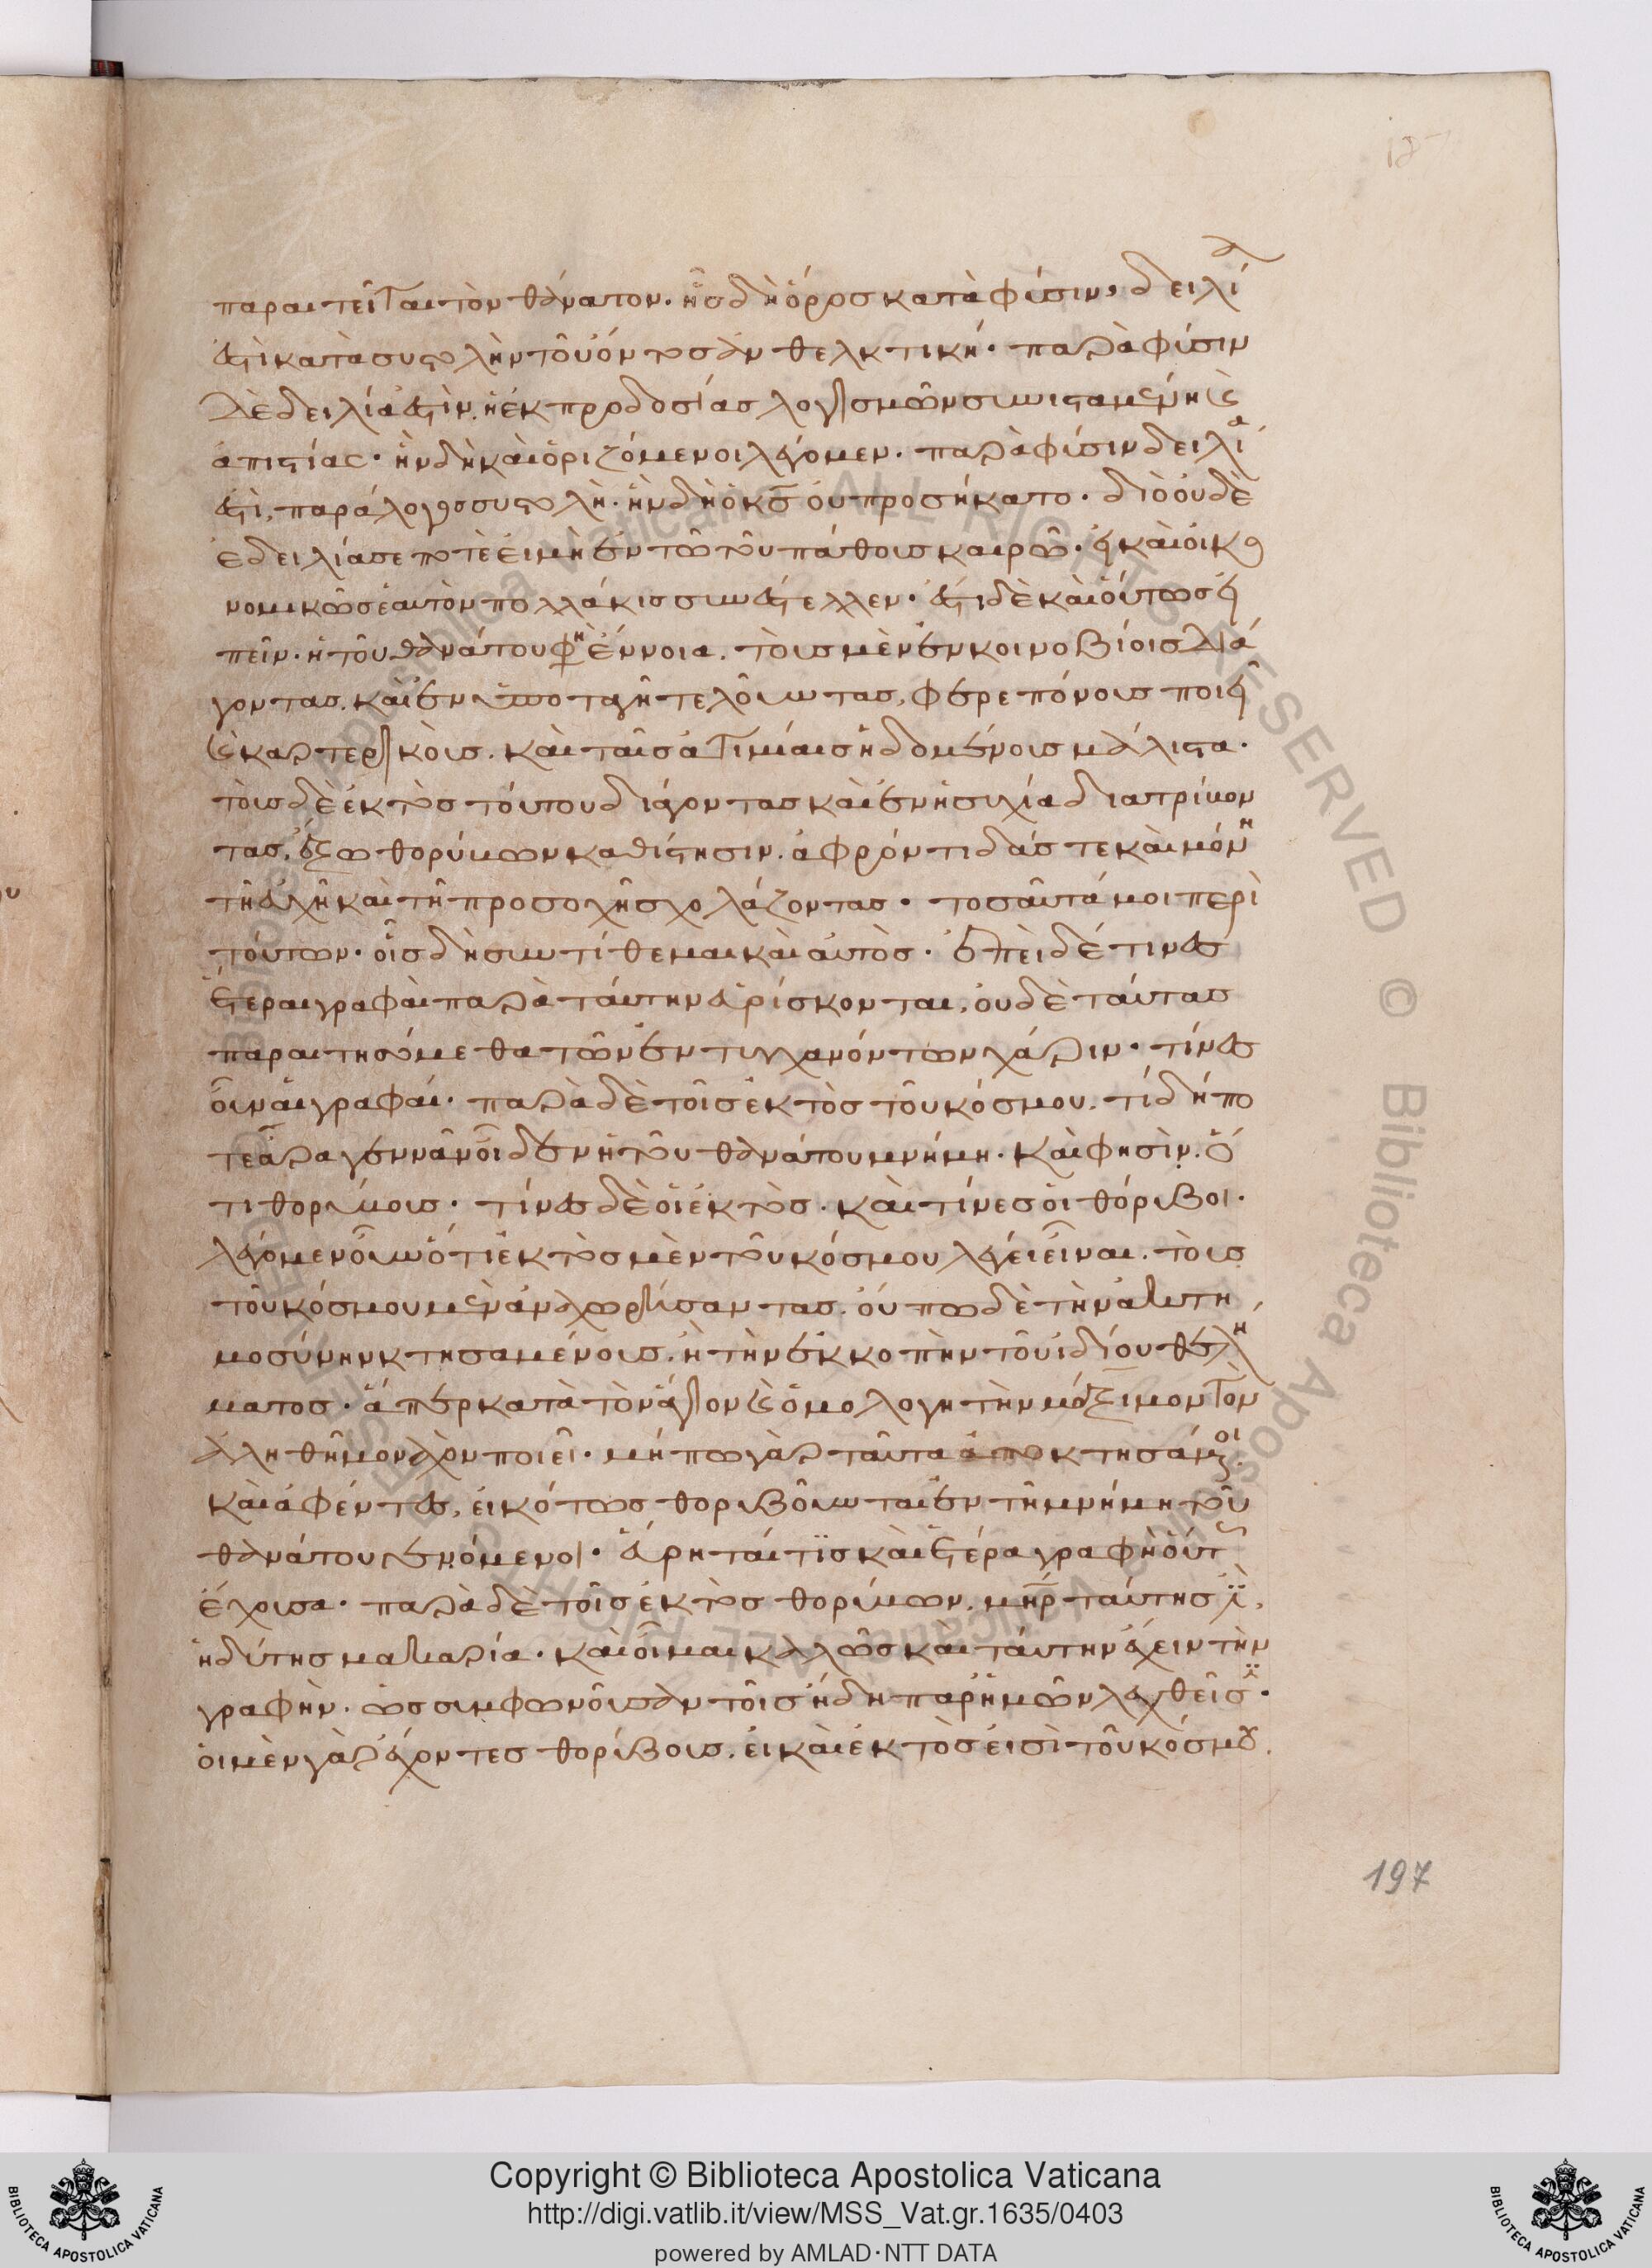 παραιτεῖται τὸν θάνατον· ἧς δὴ ὅρος κατὰ φύσιν, δειλία
ἐστὶ κατὰ συστολὴν τοῦ ὄντος ἀνθελκτική· παρὰ φύσιν
δὲ δειλία ἐστὶν, ἡ ἐκ προδοσίας λογισμῶν συνισταμένη καὶ
ἀπιστίας· ἣν δὴ καὶ ὁριζόμενοι λέγομεν· παρὰ φύσιν δειλία
ἐστὶ, παράλογος συστολὴ· ἣν δὴ ὁ κς οὐ προσήκατο· διὸ οὐδὲ
ἐδειλίασε ποτὲ εἰ μὴ ἐν τῶ τοῦ πάθους καιρῶ· εἰ καὶ οἰκο
νομικῶς ἑαυτὸν πολλάκις συνέστελλεν· ἔστι δὲ καὶ οὕτως εἰ
πεῖν· ἡ τοῦ θανάτου φη ἔννοια. τοὺς μὲν ἐν κοινοβίοις διά
γοντας, καὶ ἐν ὑποταγῆ τελοῦντας, φερεπόνους ποιεῖ
καὶ καρτερικοὺς. καὶ ταῖς ἀτιμίαις ἡδομένους μάλιστα·
τοὺς δὲ ἐκτὸς τούτου διάγοντας καὶ ἐν ἡσυχία διατρίβον
τας, ἔξω θορύβων καθίστησιν. ἀφρόντιδάς τε καὶ μόνη
τῆ εὐχῆ καὶ τῆ προσοχῆ σχολάζοντας· τοσαῦτά μοι περὶ
τούτων· οἷς δὴ συντίθεμαι καὶ αὐτὸς· ἐπεὶ δέ τινες
ἕτεραι γραφαὶ παρὰ ταύτην εὑρίσκονται, οὐδὲ ταύτας
παραιτησόμεθα τῶν ἐντυγχανόντων χάριν· τίνες
οὖν αἱ γραφαί· παρὰ δὲ τοῖς ἐκτὸς τοῦ κόσμου. τί δήπο
τε ἄρα γεννᾶν οἶδεν ἡ τοῦ θανάτου μνήμη· καὶ φησὶν. ὅ
τι θορύβους· τίνες δὲ οἱ ἐκτὸς· καὶ τίνες οἱ θόρυβοι·
λέγομεν οὖν ὅτι ἐκτὸς μὲν τοῦ κόσμου λέγει εἶναι. τοὺς
τοῦ κόσμου μὲν ἀναχωρήσαντας. οὔπω δὲ τὴν ἀκτη
μοσύνην κτησαμένους. ἢ τὴν ἐκκοπὴν τοῦ ἰδίου θελή
ματος· ἅπερ κατὰ τὸν ἅγιον καὶ ὁμολογητὴν μάξιμον τὸν
ἀληθῆ μοναχὸν ποιεῖ· μήπω γὰρ ταῦτα κτησάμενοι
καὶ ἀφέντες, εἰκότως θορυβοῦνται ἐν τῆ μνήμη τοῦ
θανάτου γενόμενοι· εὕρηται τὶς καὶ ἑτέρα γραφὴ οὕτως
ἔχουσα· παρὰ δὲ τοῖς ἐκτὸς θορύβων. μηρ ταύτης
ἡδύτης μακαρία· καὶ οἶμαι καλῶς καὶ ταύτην ἔχειν τὴν
γραφὴν. ὡς συμφωνοῦσαν τοῖς ἤδη παρ' ἡμῶν λεχθεῖσι·
οἱ μὲν γὰρ ἔχοντες θορύβους. εἰ καὶ ἐκτὸς εἰσὶ τοῦ κόσμου.
197
Copyright © Biblioteca Apostolica Vaticana
http://digi.vatlib.it/view/MSS_Vat.gr.1635/0403
powered by AMLAD·NTT DATA